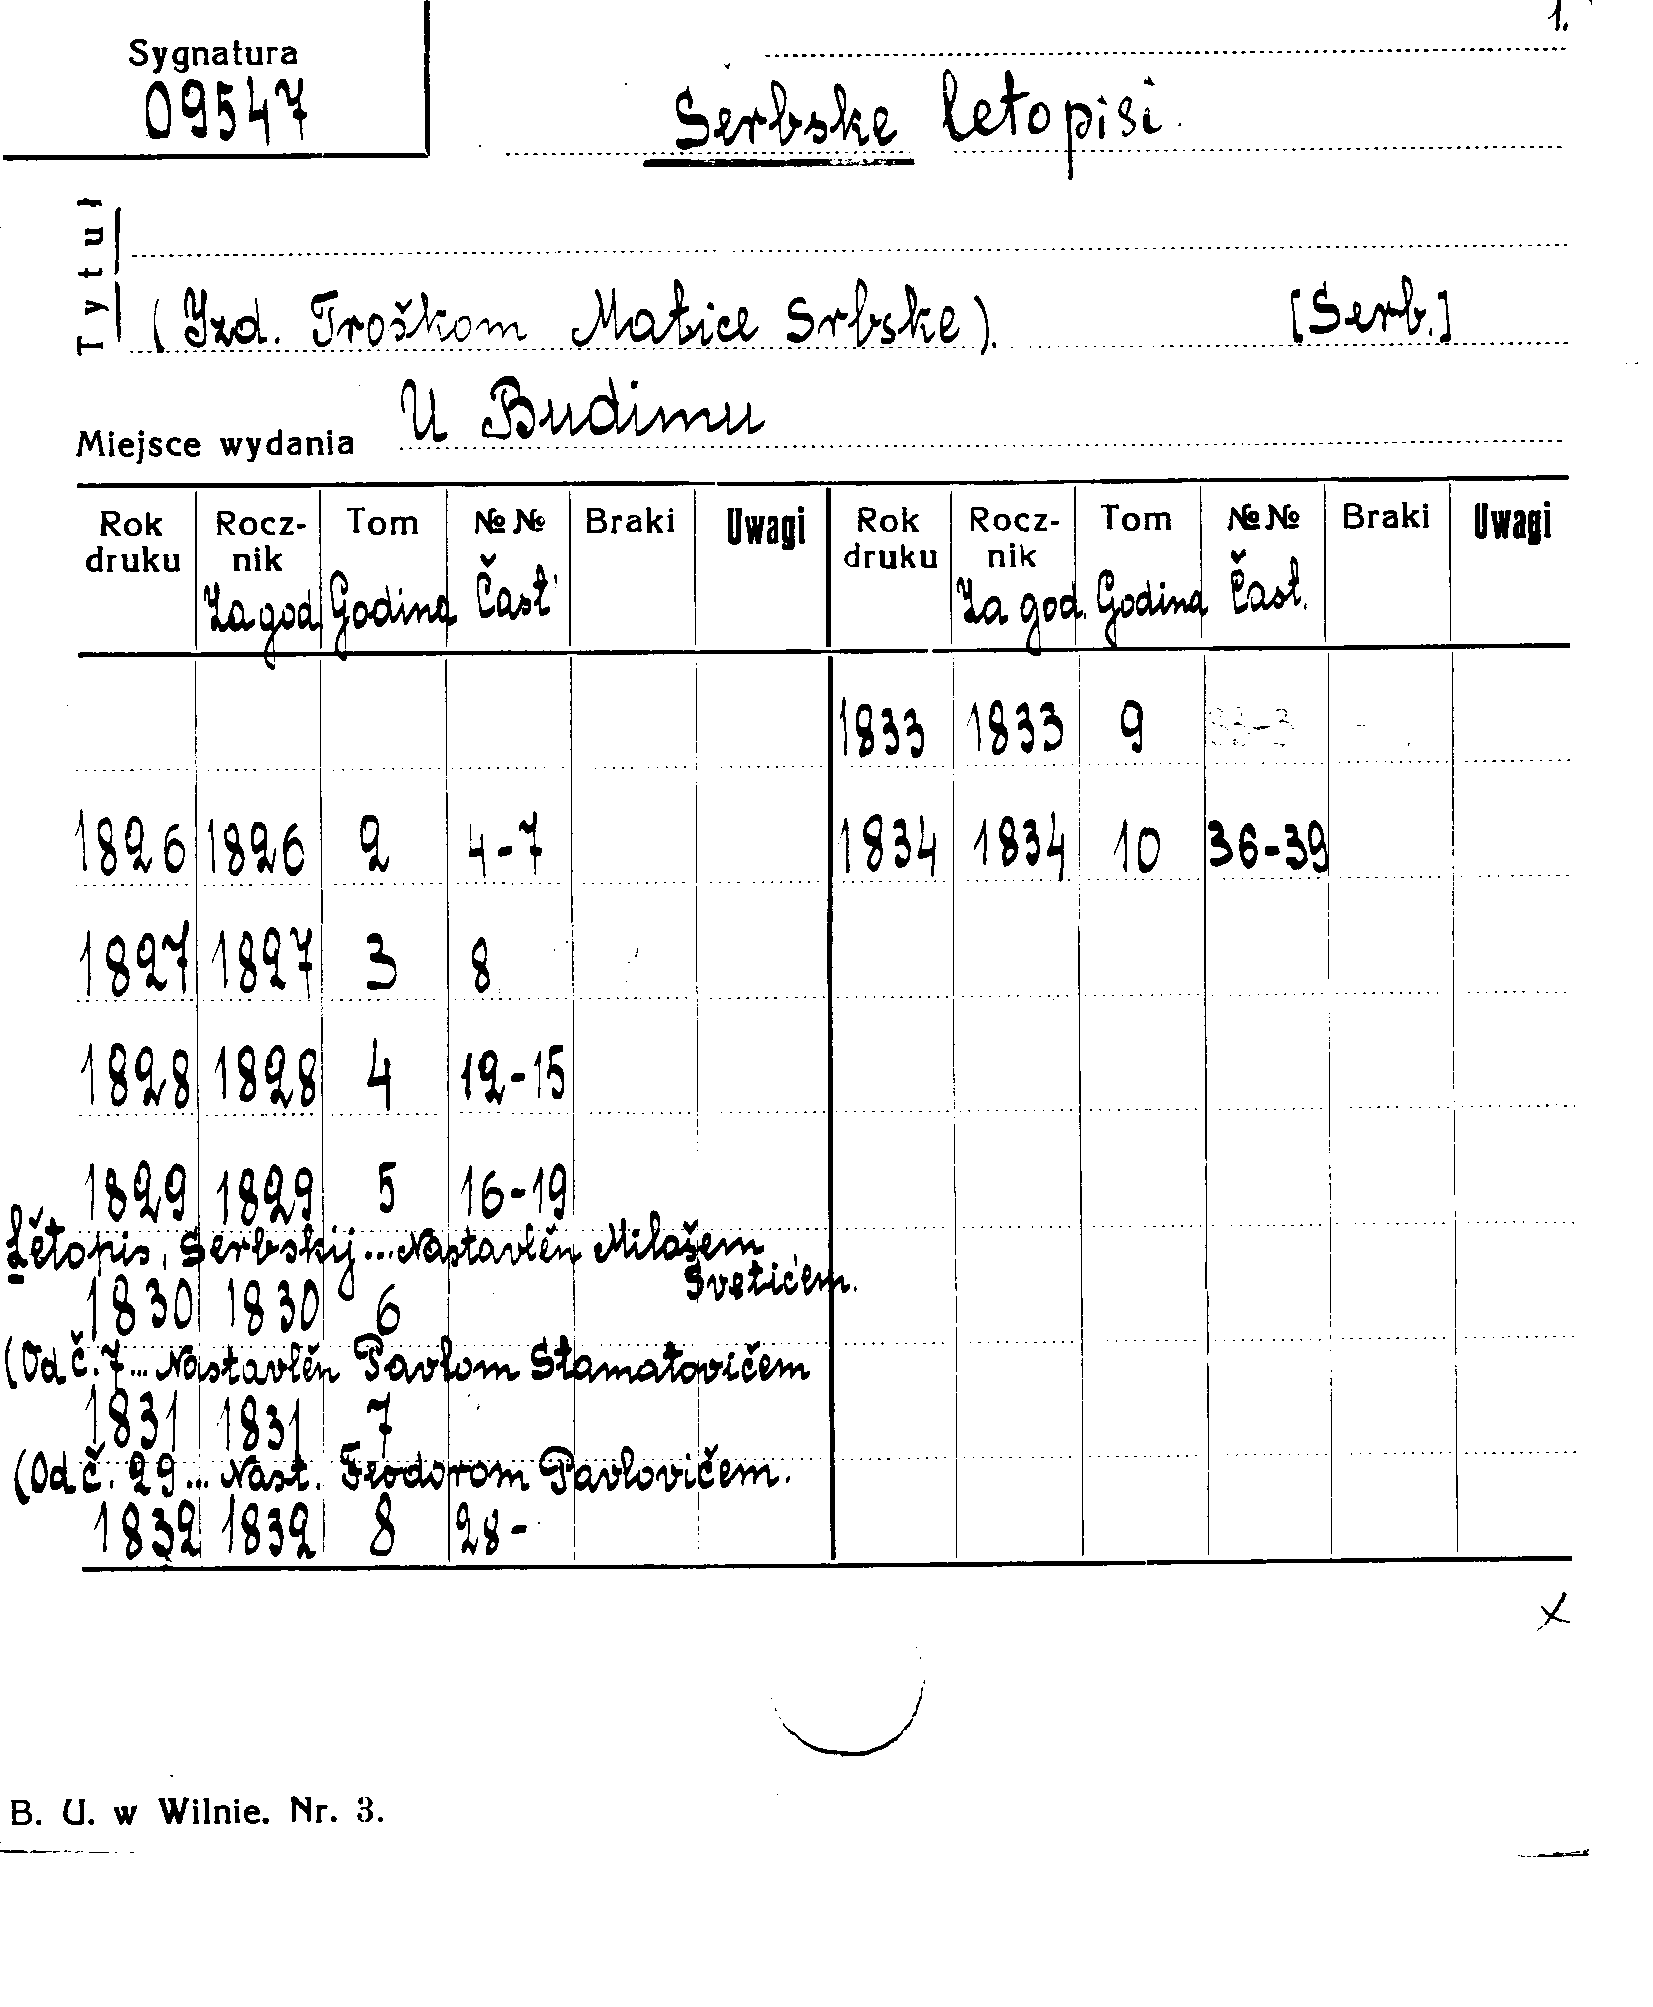 1.
Sygnatura
09547
Serbske letopisi.
Tytuł
(Izd. Troškom Matice Srbske). [Serb.]
Miejsce wydania U Budimu
Rok druku Rocz-nik Tom №№ Braki Uwagi Rok druku Rocz-nik Tom №№ Braki Uwagi
Za god. Godina Čast' Za god. Godina Čast.
1833 1833 9
1826 1826 2 4-7 1834 1834 10 36-39
1827 1827 3 8
1828 1828 4 12-15
1829 1829 5 16-19
Lětopis, Serbskij... Nastavlěn Milošem
Svetićem.
1830 1830 6
(Od č. 7... Nastavlěn Pavlom Stamatovičem
1831 1831 7
(Od č. 29... Nast. Feodorom Pavlovičem.
1832 1832 8 28-
x
B. U. w Wilnie. Nr. 3.